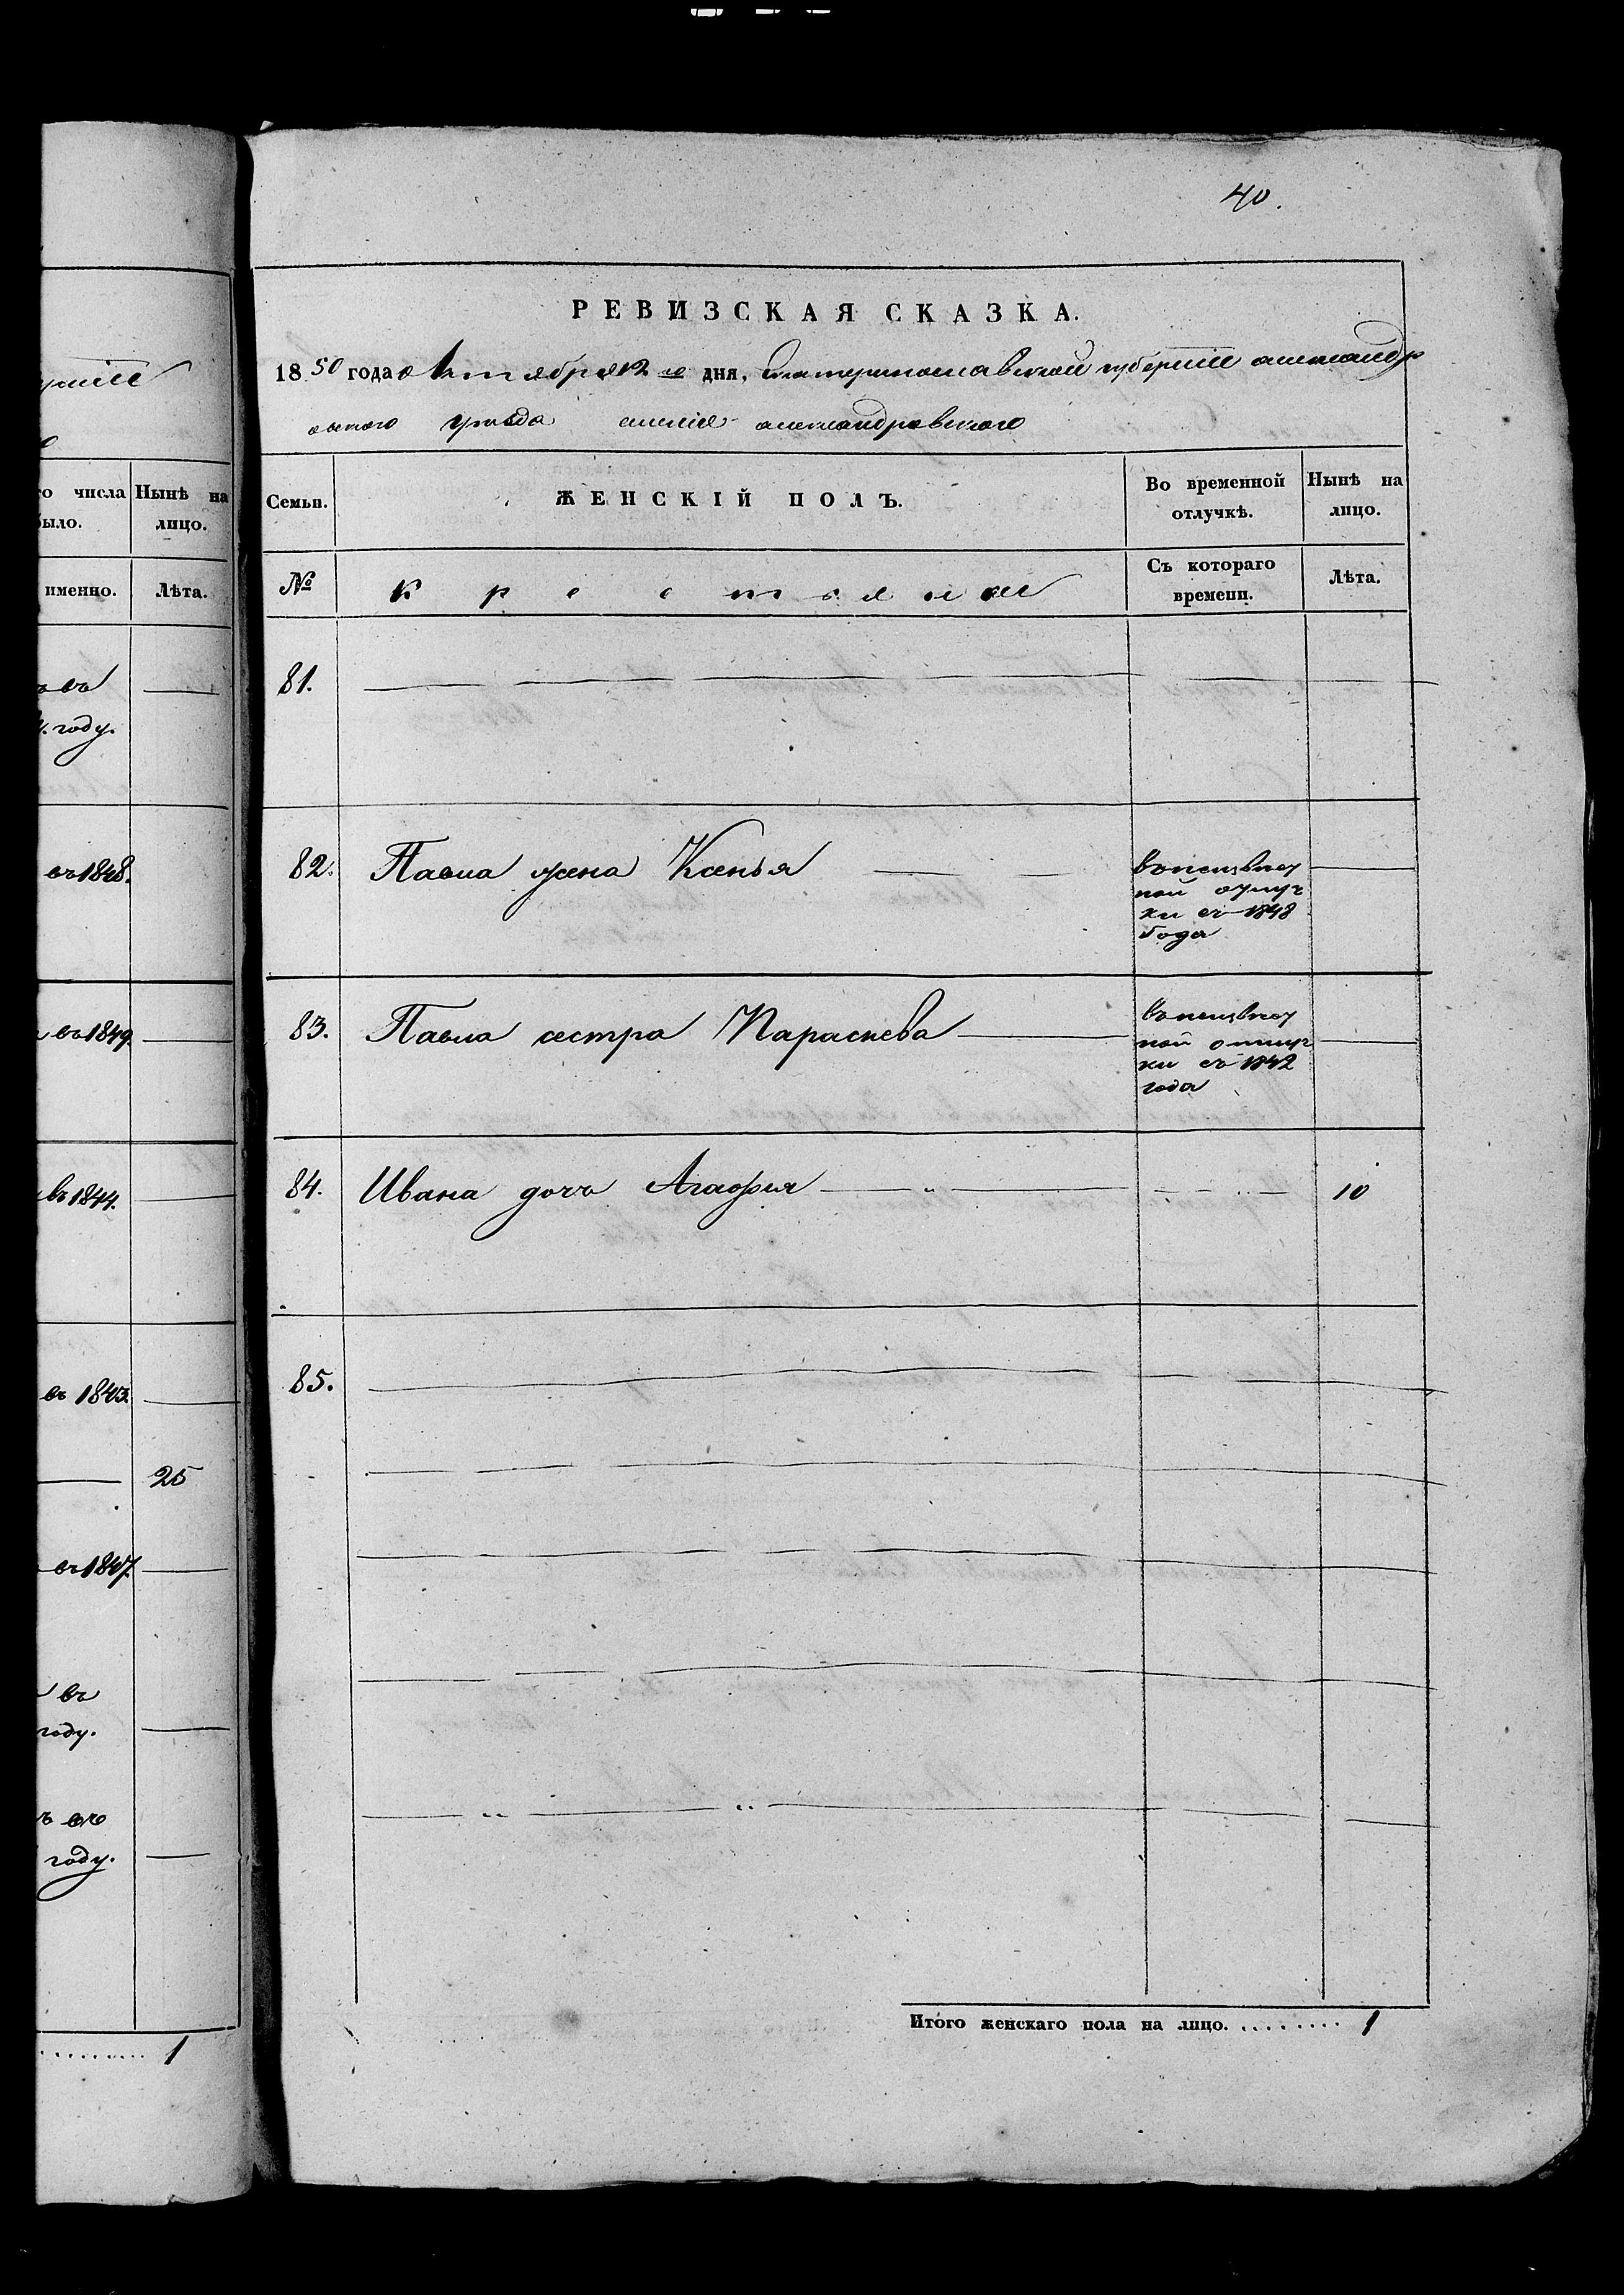 40.
РЕВИЗСКАЯ СКАЗКА.
1850 года октября 12 го дня, Екатеринославской губернии александр
овского уезда имения александровского
го числа
было.
Нынѣ на
лицо.
именно.
Лѣта.
въ
году.
въ 1848.
въ 1849.
въ 1844.
въ 1843.
25
въ 1847.
въ
году.
въ
году.
1
Семьи.
ЖЕНСКІЙ ПОЛЪ.
Во временной
отлучкѣ.
Нынѣ на
лицо.
№
крестьянки
Съ котораго
времени.
Лѣта.
81.
82. Павла жена Ксенья
въ неизвест
ной отлуч
ки съ 1848
года
83. Павла сестра Параскева
въ неизвест
ной отлуч
ки съ 1842
года
84. Ивана дочь Агафия 10
85.
Итого женскаго пола на лицо. ........ 1